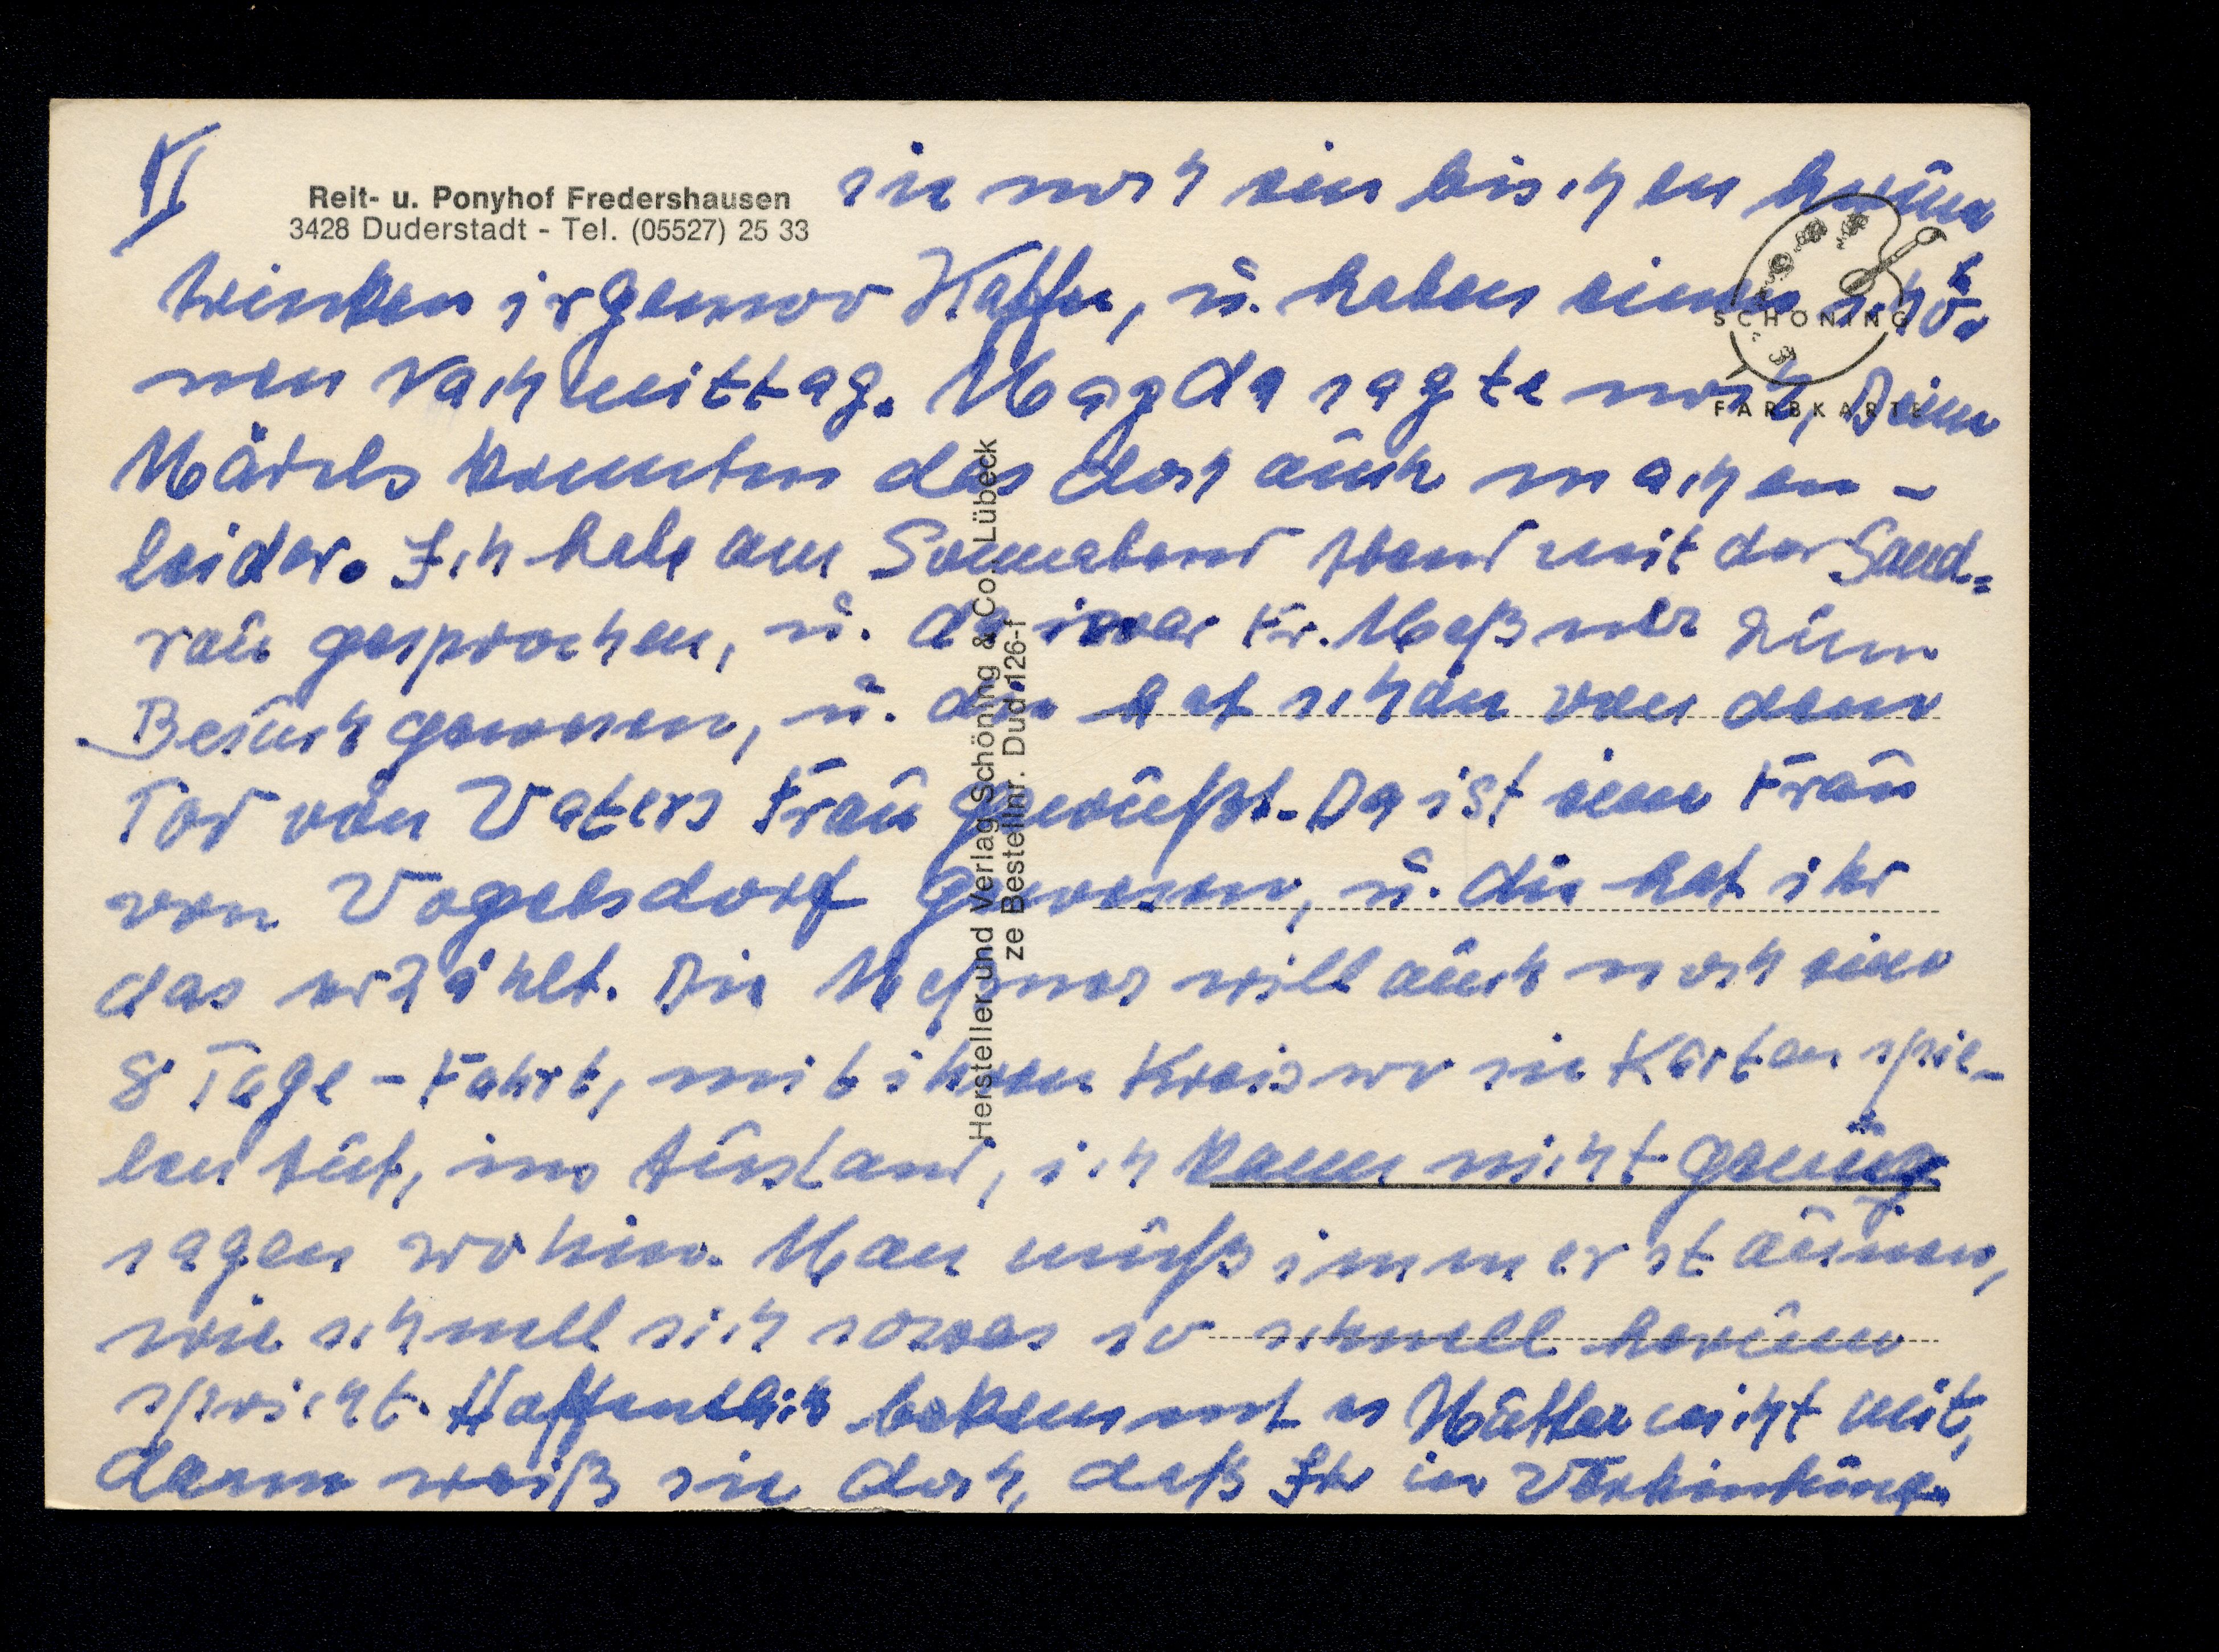 VI
Reit- u. Ponyhof Fredershausen
3428 Duderstadt - Tel. (05527) 25 33
sie noch ein bischen herum
trinken irgenwo Kaffe, u. haben einen schö-
nen Nachmittag. Magda sagte noch, Deine
Mädels konnten das doch auch machen -
leider. Ich habe am Sonnabend Abend mit der Sand-
rau gesprochen, u. da war Fr. Meßner zum
Besuch gewesen, u. die hat schon von dem
Tod von Vaters Frau gewußt. Da ist eine Frau
von Vogelsdorf gewesen, u. die hat ihr
das erzählt. Die Meßner will auch noch eine
8 Tage - Fahrt, mit ihrem Kreis wo sie Karten spie-
len tut, ins Ausland, ich kann nicht genug
sagen wohin. Man muß immer staunen,
wie schnell sich sowas so schnell herum
spricht. Hoffentlich bekommt es Mutter nicht mit,
denn weiß sie doch, daß Ihr in Verbindung
SCHÖNING
FARBKARTE
Hersteller und Verlag Schöning & Co., Lübeck
ze Bestellnr. Dud 126-f